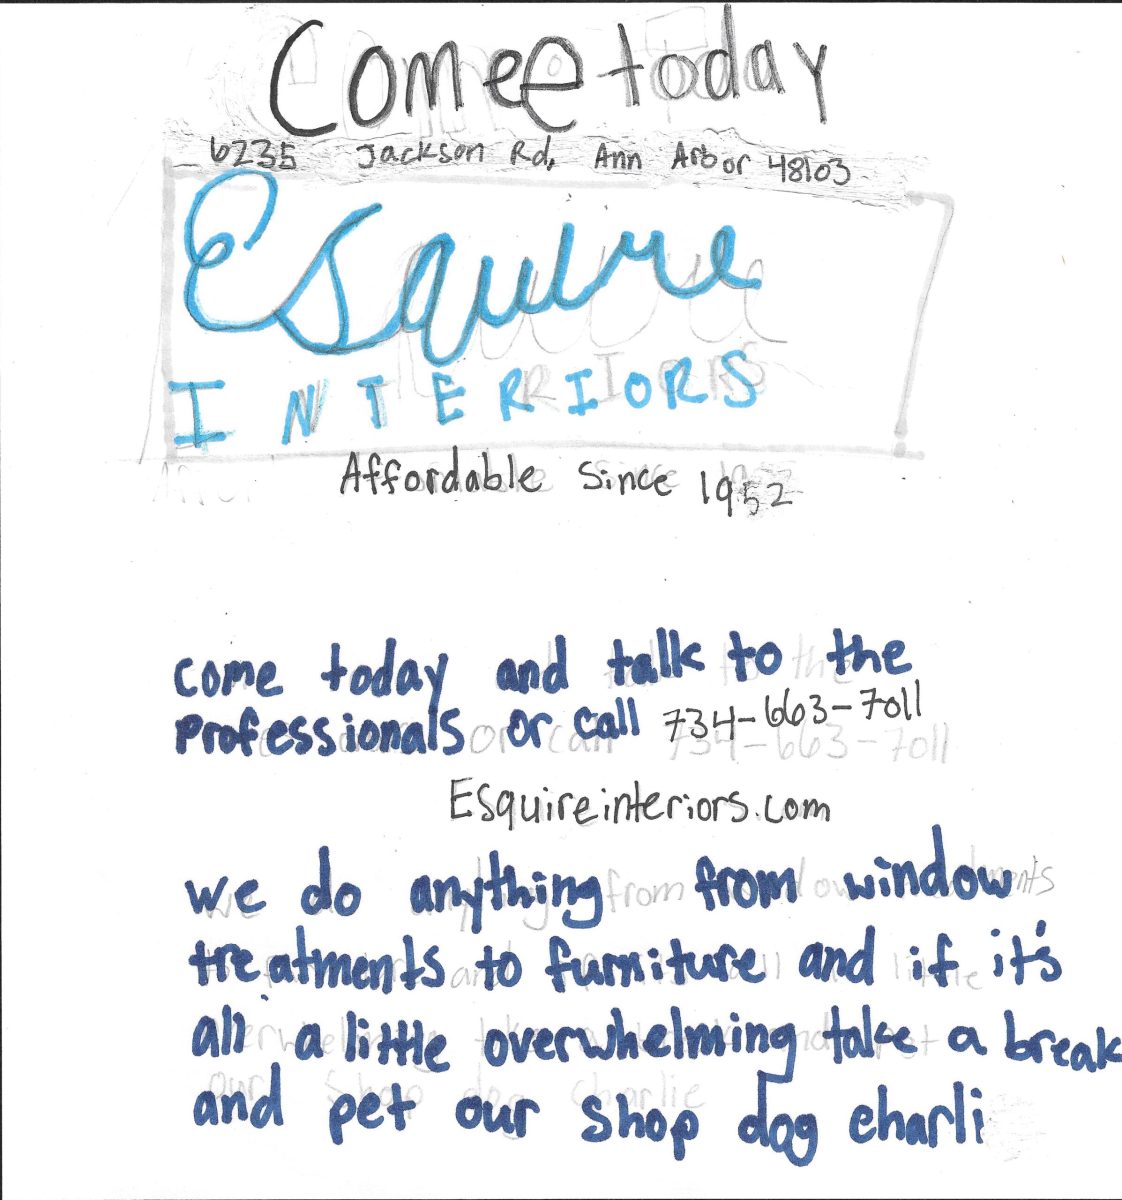 Comee today
6235 Jackson Rd, Ann Arbor 48103
Esquire
INTERIORS
Affordable Since 1952
come today and talk to the
professionals or call 734-663-7011
Esquireinteriors.com
we do anything from window
treatments to furniture and if it's
all a little overwhelming take a break
and pet our shop dog charli